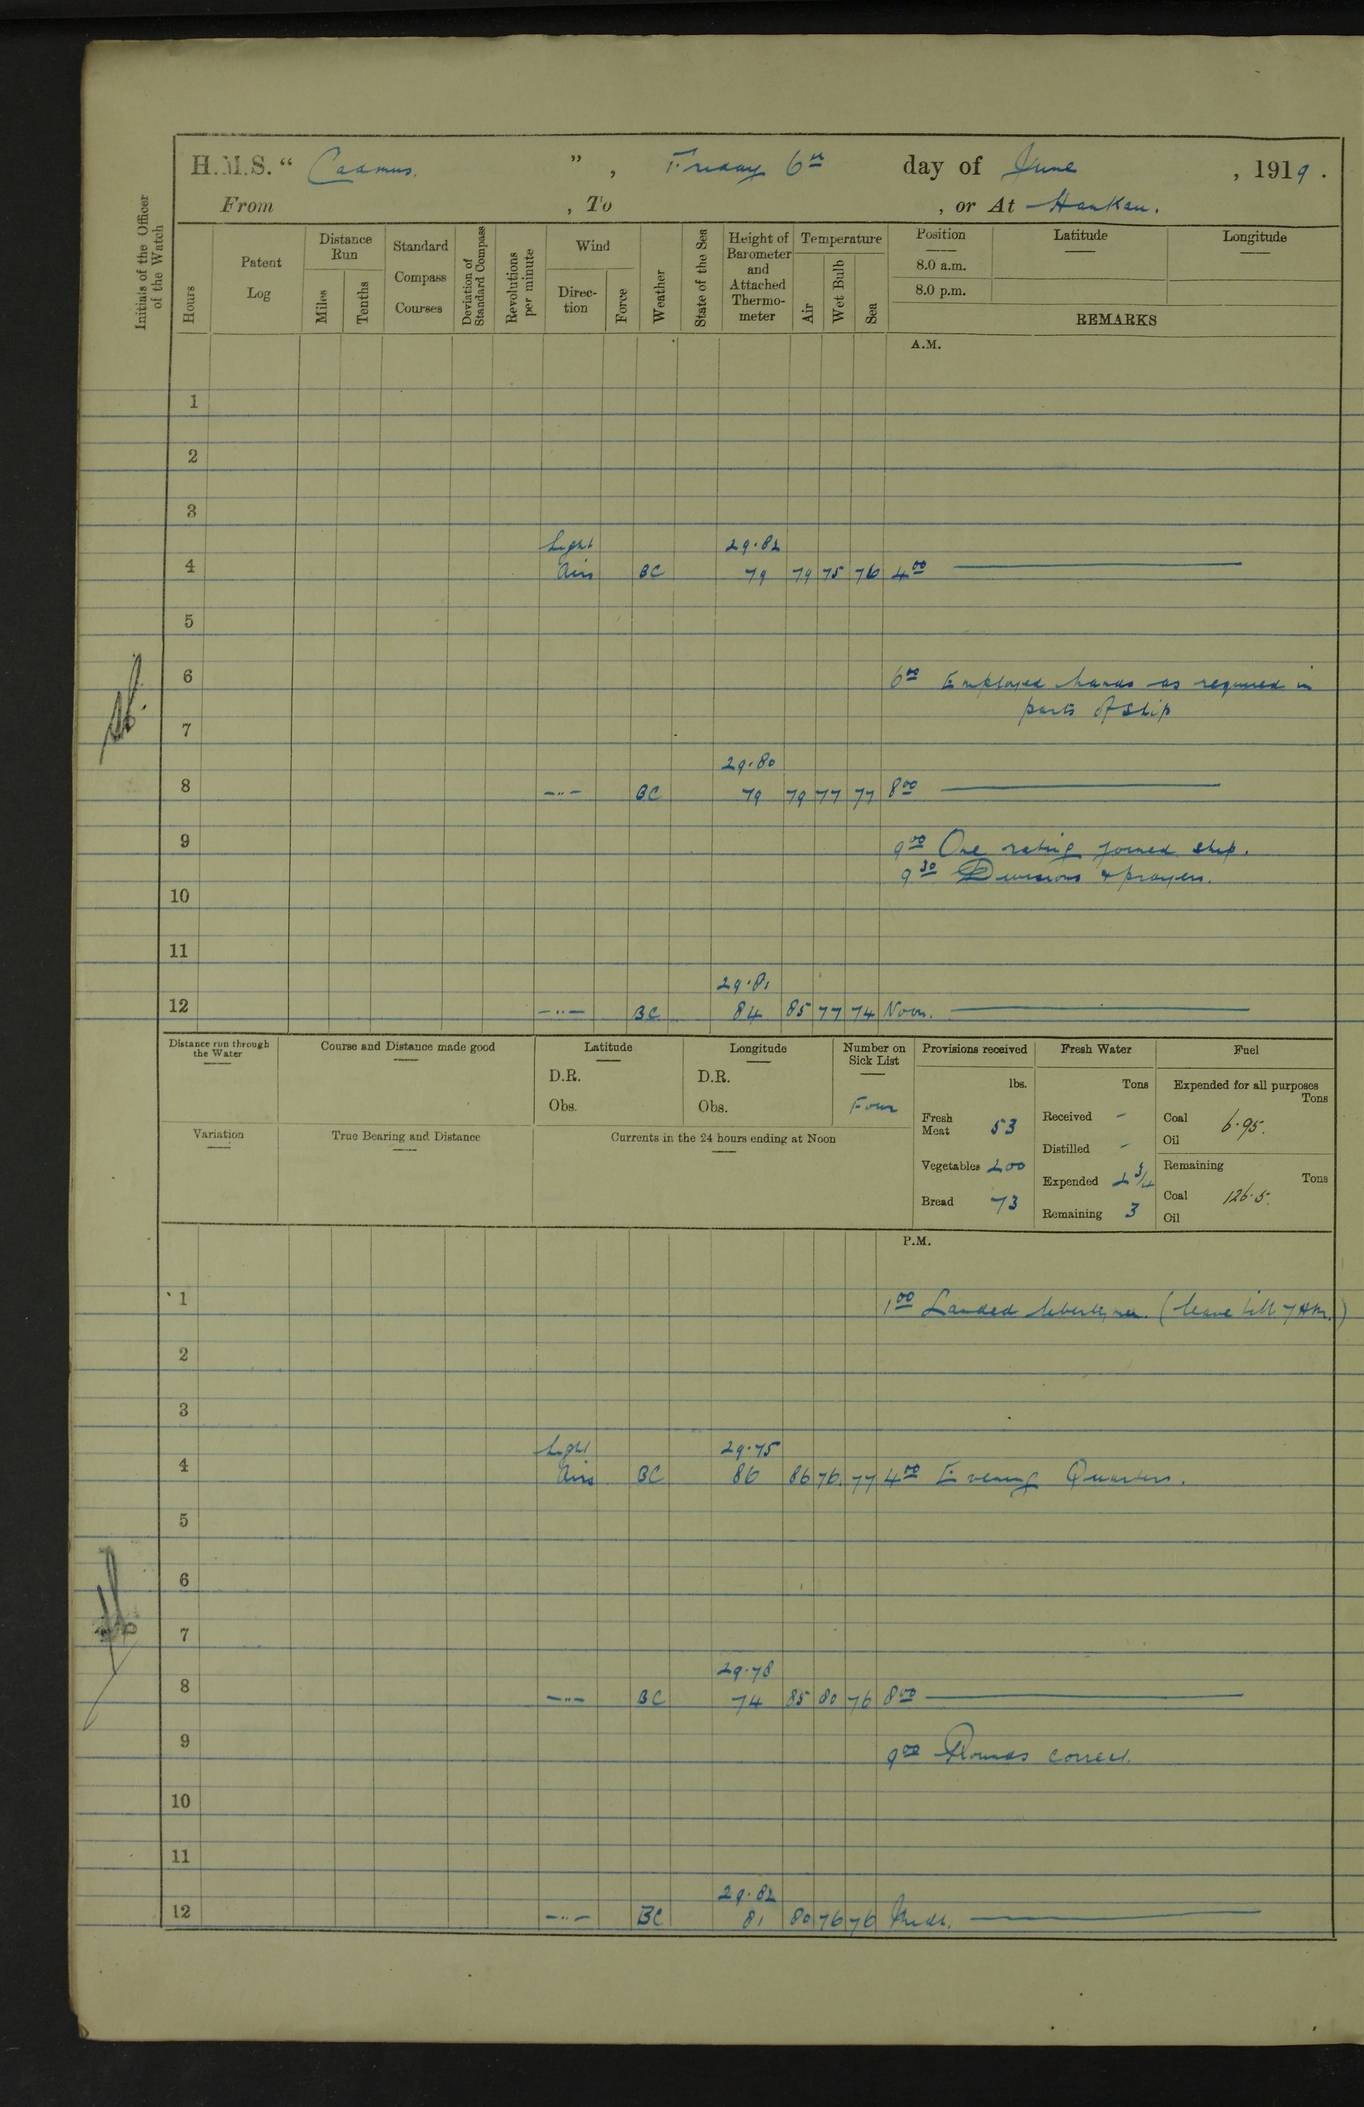 H.M.S. “ Cadmus. ” , Friday 6th day of June , 1919 .
From , To , or At Hankau.
Initials of the Officer of the Watch
Hours
Patent Log
Distance Run
Miles
Tenths
Standard Compass Courses
Deviation of Standard Compass
Revolutions per minute
Wind
Direc- tion
Force
Weather
State of the Sea
Height of Barometer and Attached Thermo- meter
Temperature
Air
Wet Bulb
Sea
Position
8.0 a.m.
8.0 p.m.
Latitude
Longitude
REMARKS
A.M.
1
2
3
Light 29.82
4 Airs BC 79 79 75 76 4 00
5
6 6 00 Employed hands as required in
parts of ship
7
29.80
8 —"— BC 79 79 77 77 8 00
9 9 00 One rating joined ship.
9 30 Divisions & prayers.
10
11
29.81
12 —"— BC 84 85 77 74 Noon.
Distance run through the Water
Course and Distance made good
Latitude
D.R.
Obs.
Longitude
D.R.
Obs.
Number on Sick List
Four
Provisions received
lbs.
Fresh Meat 53
Vegetables 200
Bread 73
Fresh Water
Tons
Received -
Distilled -
Expended 2 3/4
Remaining 3
Fuel
Expended for all purposes
Tons
Coal 6.95.
Oil
Remaining
Tons
Coal 126.5.
Oil
Variation
True Bearing and Distance
Currents in the 24 hours ending at Noon
P.M.
1 1 00 Landed libertymen. (leave till 7 AM.)
2
3
Light 29.75
4 Airs BC 86 86 76 77 4 00 Evening Quarters.
5
6
7
29.78
8 —"— BC 74 85 80 76 8 00
9 9 00 Rounds correct.
10
11
29.82
12 —"— BC 81 80 76 76 Midt.